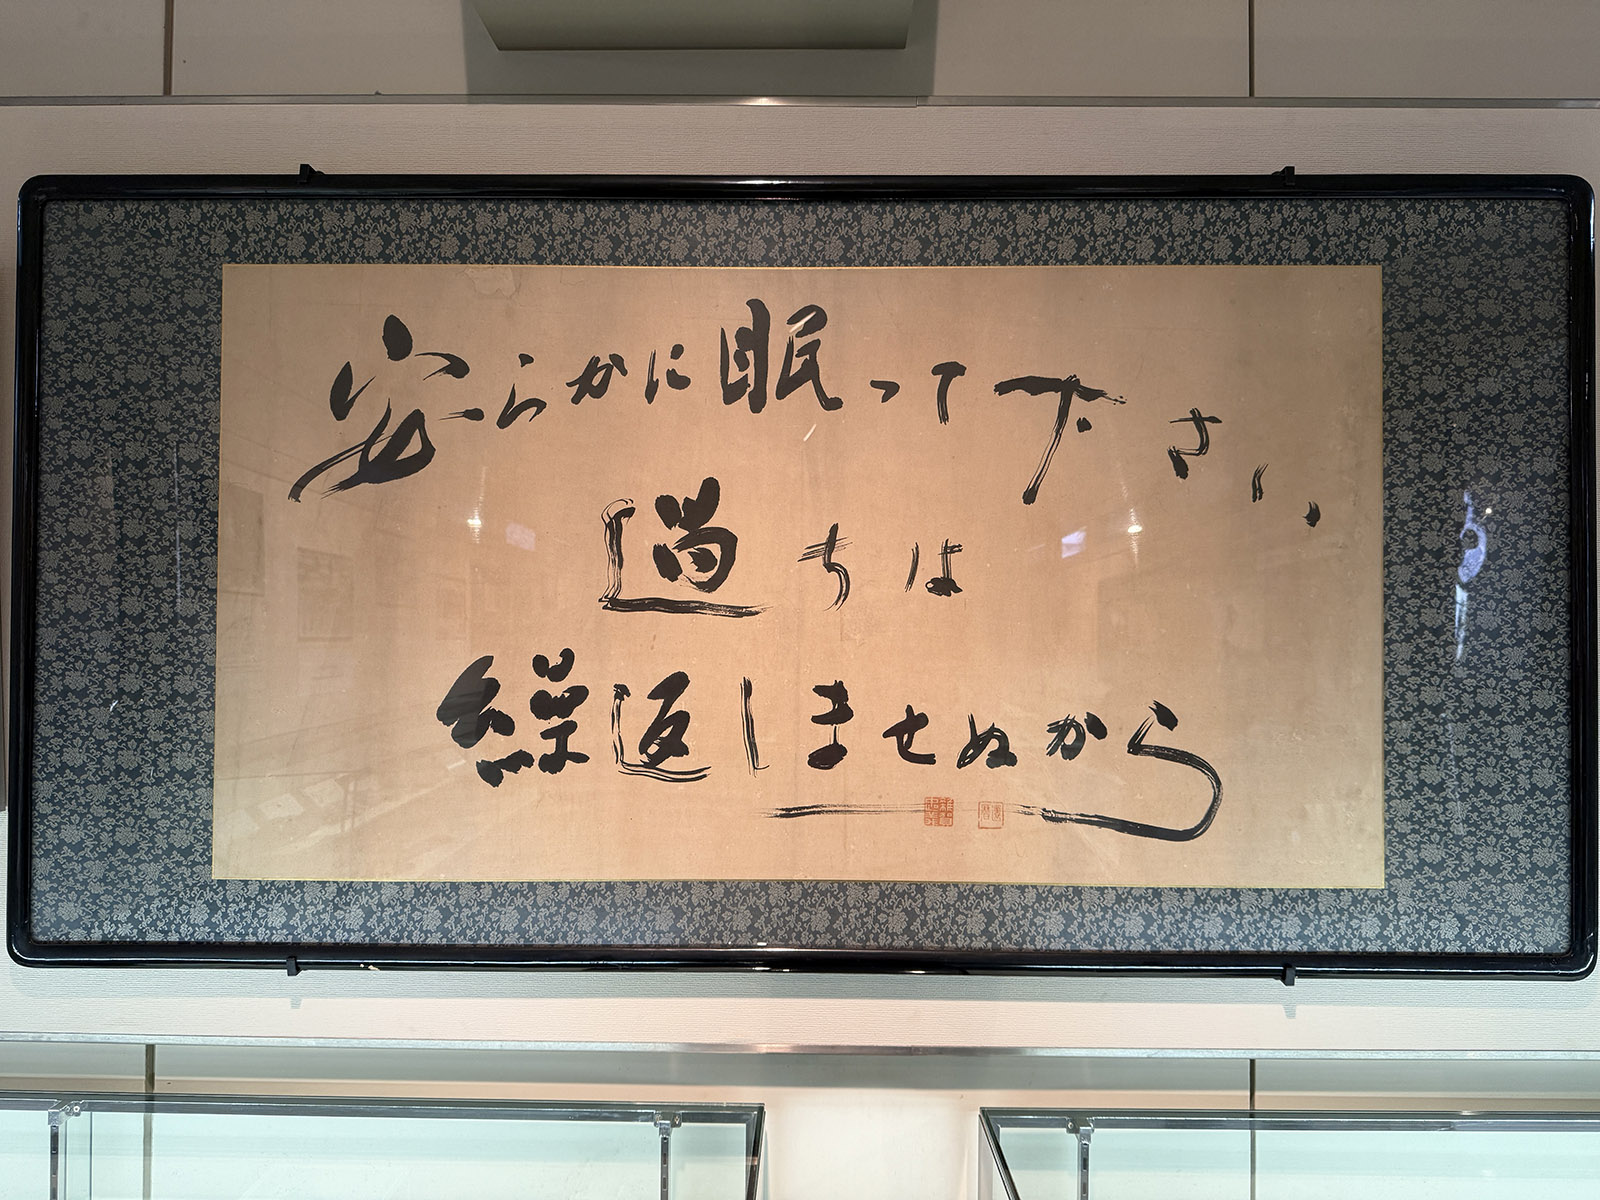 安らかに眠って下さい、
過ちは
繰返しませぬから